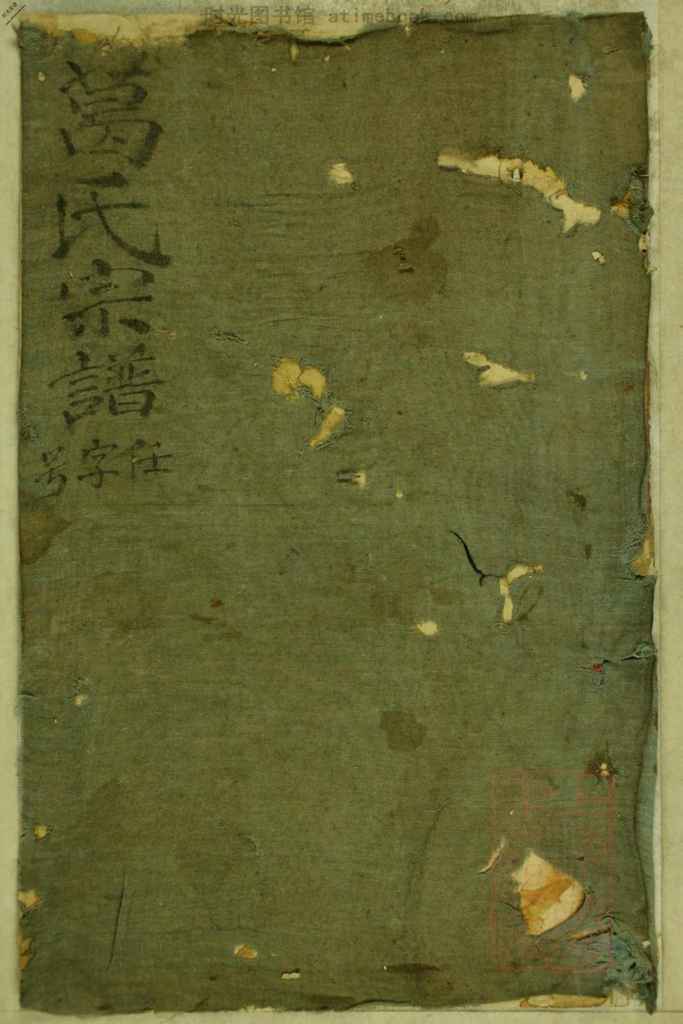 时光图书馆 atimebook.com
葛氏宗譜
任字号